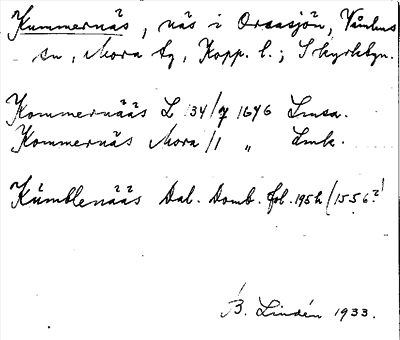 Kummernäs, näs i Orsasjön, Våmhus
sn, Mora tg, Kopp. l.; S kyrkbyn.
Kommernääs L 34/7 1646 Lmsa.
Kommernäs Mora /1 „ Lmk.
Kumblenääs Dal. Domb. fol. 195 b (1556?)
B. Lindén 1933.